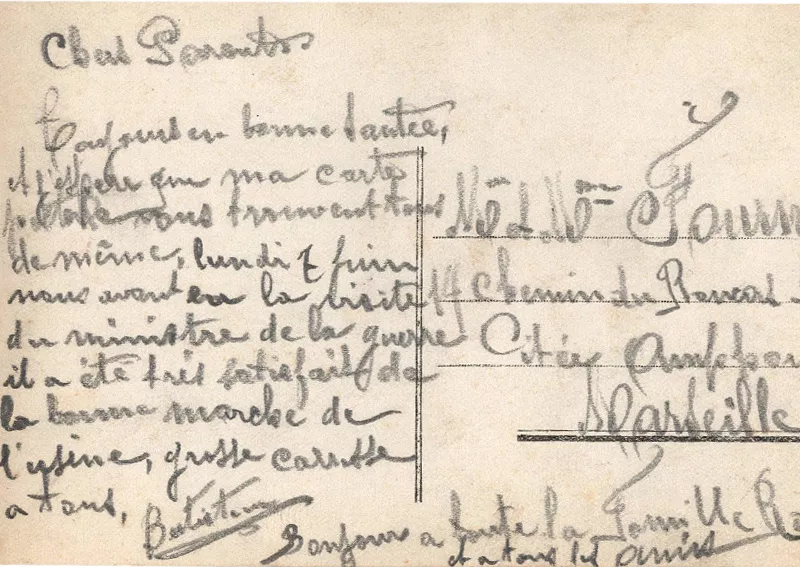 Chers Parents
Toujours en bonne santée,
et j'espère que ma carte
vous trouvent tous
de même, lundi 7 juin
nous avont eu la visite
du ministre de la guerre
il a été trés satisfait de
la bonne marche de
l'usine, grosse caresse
a tous,
Mr et Mme
19 Chemin du
Citée
Marseille
Bonjour a toute la Famille
et a tous les amis